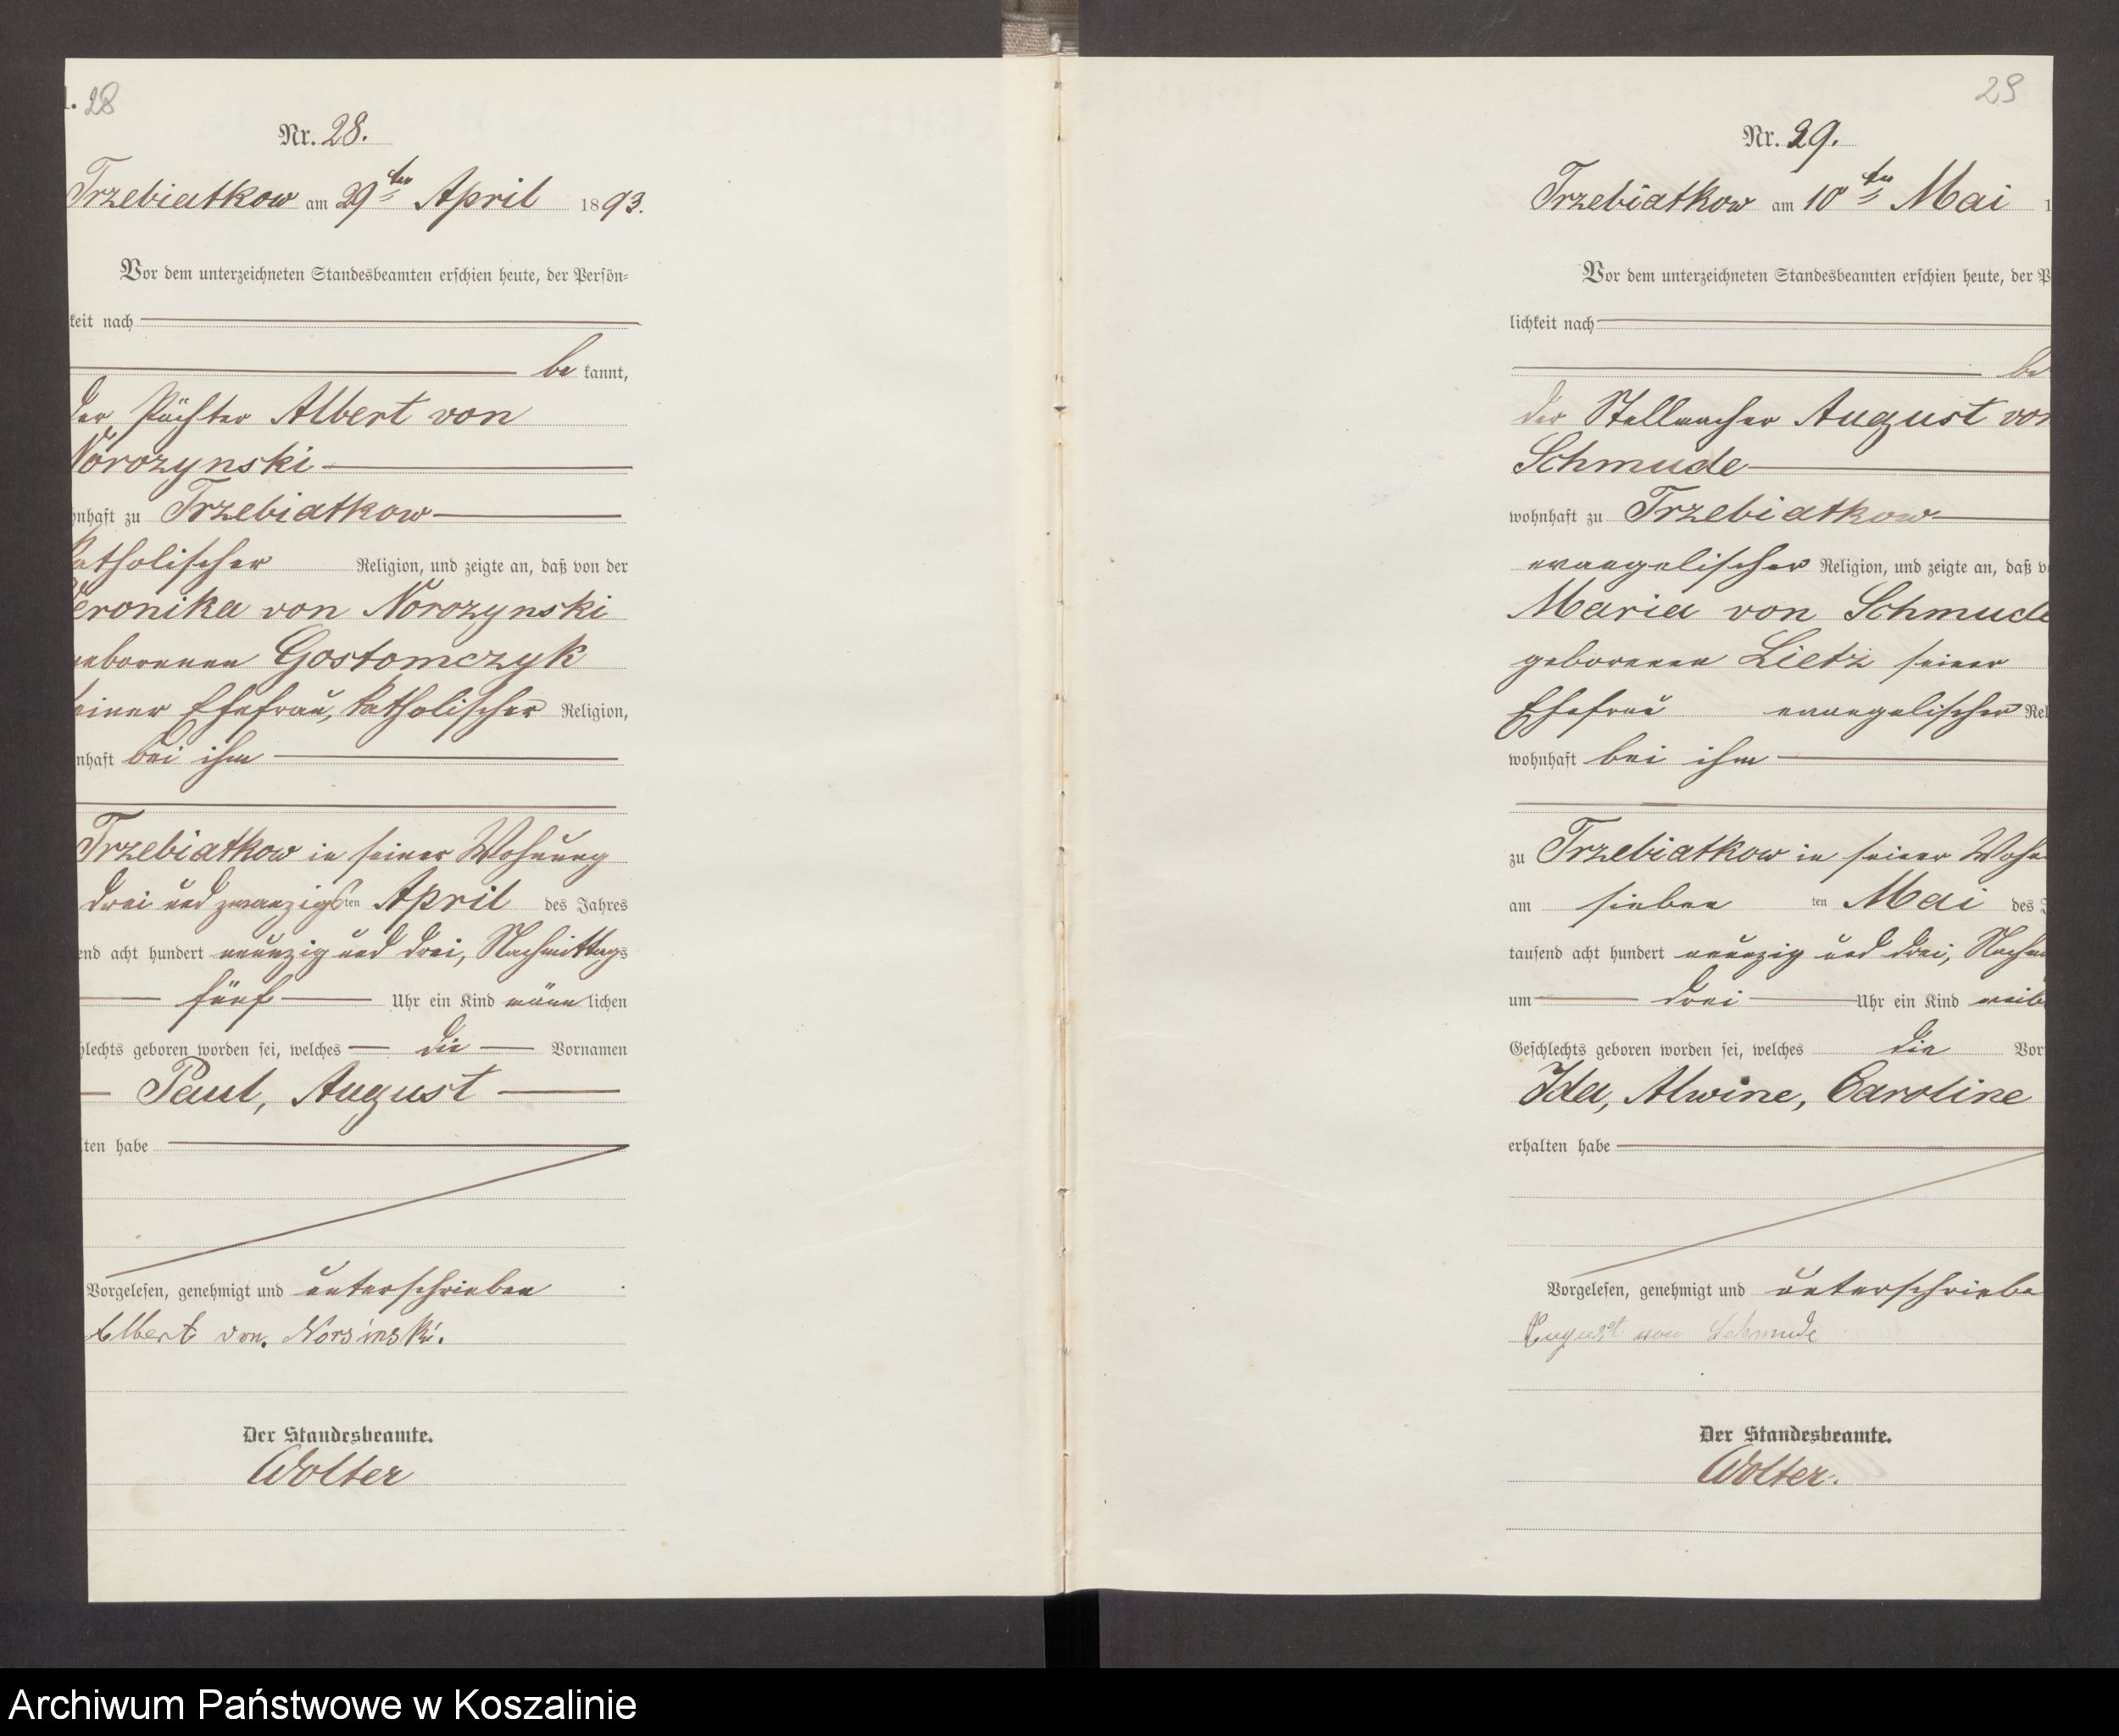 28
Nr. 28.
Trzebiatkow am 29ten April 1893.
Vor dem unterzeichneten Standesbeamten erschien heute, der Persön-
keit nach
be kannt,
der Pächter Albert von
Norozynski
nhaft zu Trzebiatkow
katholischer Religion, und zeigte an, daß von der
Veronika von Norozynski
geborenen Gostomczyk
seiner Ehefrau, katholischer Religion,
nhaft bei ihm
Trzebiatkow in seiner Wohnung
drei und zwanzigsten April des Jahres
end acht hundert neunzig und drei, Nachmittags
fünf Uhr ein Kind männlichen
hlechts geboren worden sei, welches die Vornamen
Paul, August
lten habe
Vorgelesen, genehmigt und unterschrieben
Albert von. Norsinski.
Der Standesbeamte.
Wolter
29
Nr. 29.
Trzebiatkow am 10ten Mai 1
Vor dem unterzeichneten Standesbeamten erschien heute, der P
lichkeit nach
be
der Stellmacher August von
Schmude
wohnhaft zu Trzebiatkow
evangelischer Religion, und zeigte an, daß v
Maria von Schmude
geborenen Lietz seiner
Ehefrau evangelischer Rel
wohnhaft bei ihm
zu Trzebiatkow in seiner Wohn
am sieben ten Mai des J
tausend acht hundert neunzig und drei, Nachm
um drei Uhr ein Kind weib
Geschlechts geboren worden sei, welches die Vor
Ida, Alwine, Caroline
erhalten habe
Vorgelesen, genehmigt und unterschriebe
August von Schmude
Der Standesbeamte.
Wolter.
Archiwum Państwowe w Koszalinie